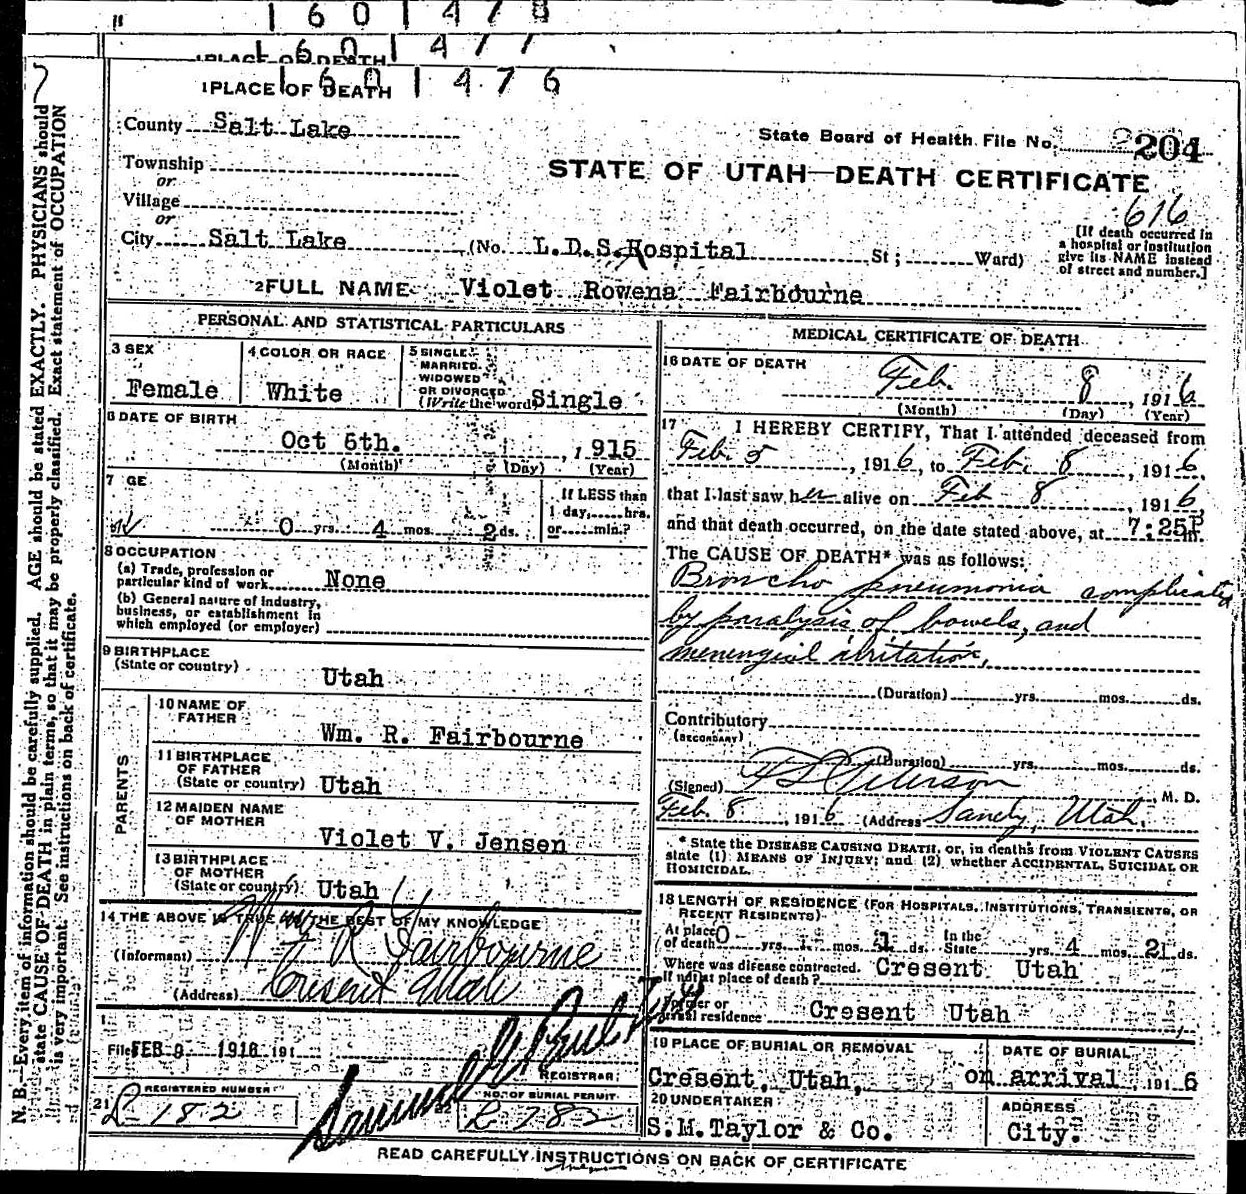 1601478
1601477
1 PLACE OF DEATH
1601476
1 PLACE OF DEATH
County Salt Lake
State Board of Health File No. 204
Township
or
STATE OF UTAH—DEATH CERTIFICATE
Village
or
616
City Salt Lake (No. L.D.S. Hospital St; Ward)
[If death occurred in
a hospital or institution
give its NAME instead
of street and number.]
2 FULL NAME Violet Rowena Fairbourne
PERSONAL AND STATISTICAL PARTICULARS
3 SEX
Female
4 COLOR OR RACE
White
5 SINGLE,
MARRIED,
WIDOWED
OR DIVORCED
(Write the word) Single
6 DATE OF BIRTH
Oct 6th. , 1915
(Month) (Day) (Year)
7 GE
0 yrs. 4 mos. 2 ds.
If LESS than
1 day, hrs.
or min.?
8 OCCUPATION
(a) Trade, profession or
particular kind of work None
(b) General nature of industry,
business, or establishment in
which employed (or employer)
9 BIRTHPLACE
(State or country)
Utah
PARENTS
10 NAME OF
FATHER
Wm. R. Fairbourne
11 BIRTHPLACE
OF FATHER
(State or country) Utah
12 MAIDEN NAME
OF MOTHER
Violet V. Jensen
13 BIRTHPLACE
OF MOTHER
(State or country) Utah
14 THE ABOVE IS TRUE TO THE BEST OF MY KNOWLEDGE
(Informant) Wm R Fairbourne
(Address) Cresent Utah
Filed FEB 9 1916 191
REGISTRAR
21 REGISTERED NUMBER
L-182
22 NO. OF BURIAL PERMIT
L 782
MEDICAL CERTIFICATE OF DEATH
16 DATE OF DEATH
Feb. 8, 1916
(Month) (Day) (Year)
17 I HEREBY CERTIFY, That I attended deceased from
Feb. 5, 1916, to Feb. 8, 1916,
that I last saw her alive on Feb 8, 1916,
and that death occurred, on the date stated above, at 7:25P m.
The CAUSE OF DEATH* was as follows:
Broncho pneumonia complicated
by paralysis of bowels, and
menengial irritation,
(Duration) yrs. mos. ds.
Contributory
(SECONDARY)
(Duration) yrs. mos. ds.
(Signed) Peterson, M. D.
Feb. 8, 1916 (Address Sandy, Utah.
* State the DISEASE CAUSING DEATH, or, in deaths from VIOLENT CAUSES
state (1) MEANS OF INJURY; and (2) whether ACCIDENTAL, SUICIDAL OR
HOMICIDAL.
18 LENGTH OF RESIDENCE (FOR HOSPITALS, INSTITUTIONS, TRANSIENTS, OR
RECENT RESIDENTS)
At place
of death 0 yrs. mos. 1 ds. In the
State yrs. 4 mos. 2 ds.
Where was disease contracted, Cresent Utah
If not at place of death?
Former or
usual residence Cresent Utah
19 PLACE OF BURIAL OR REMOVAL
Cresent, Utah,
DATE OF BURIAL
on arrival, 1916
20 UNDERTAKER
S.M.Taylor & Co.
ADDRESS
City.
READ CAREFULLY INSTRUCTIONS ON BACK OF CERTIFICATE
N. B.—Every item of information should be carefully supplied. AGE should be stated EXACTLY. PHYSICIANS should
state CAUSE OF DEATH in plain terms, so that it may be properly classified. Exact statement of OCCUPATION
is very important. See instructions on back of certificate.